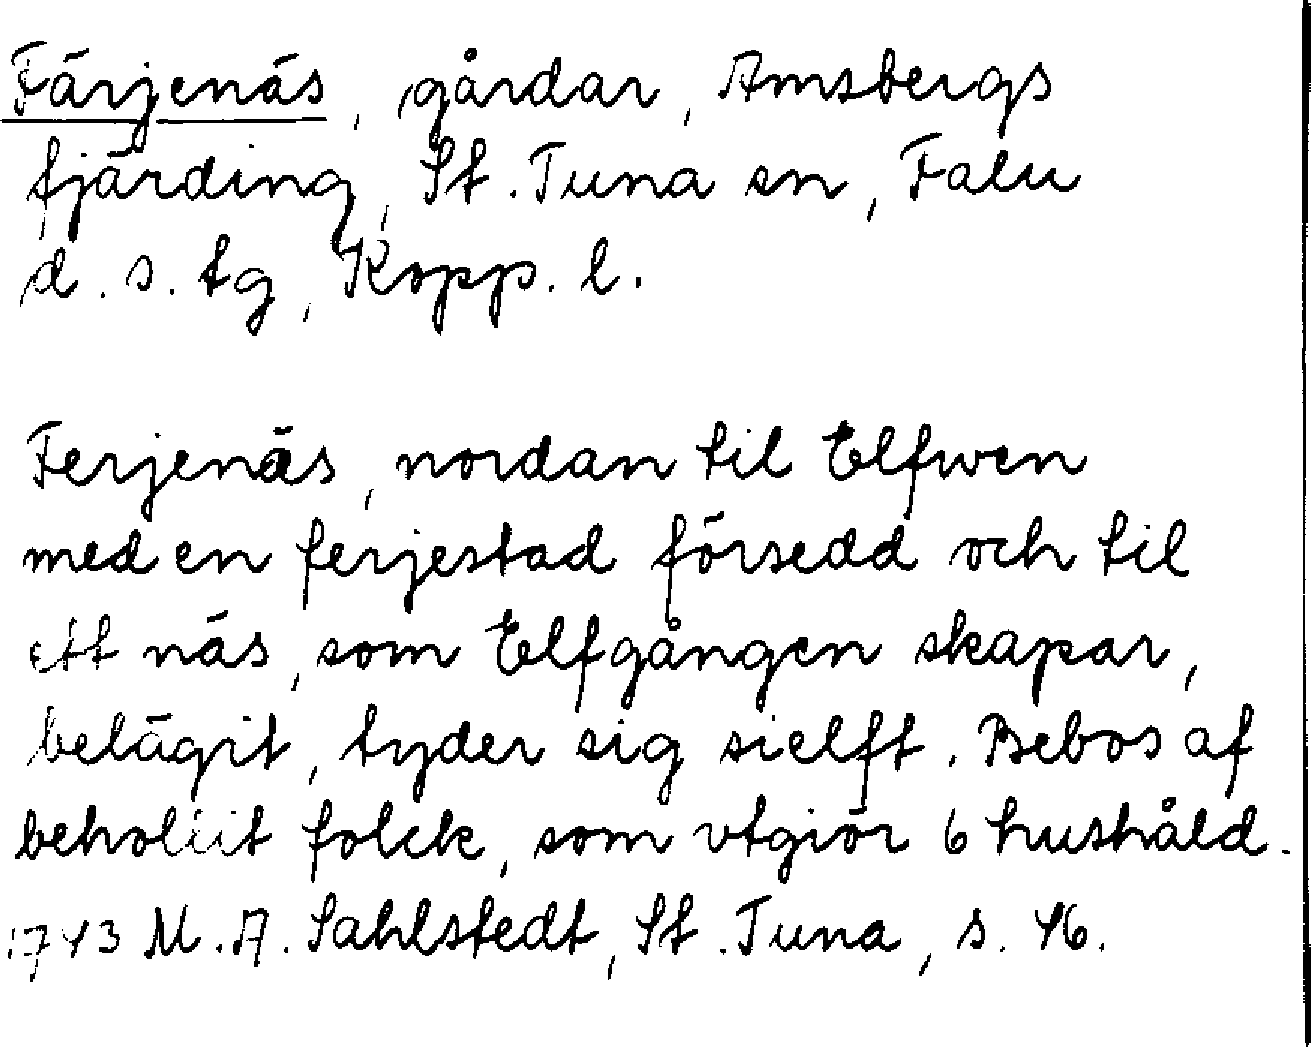 Färjenäs, gårdar, Amsbergs
fjärding, St. Tuna sn, Falu
d. s. tg, Kopp. l.
Ferjenäs, nordan til Elfwen
med en ferjestad försedd och til
ett näs, som Elfgången skapar,
belägit, tyder sig sielft. Bebos af
folck, som vtgiör 6 hushåld.
1743 M. A. Sahlstedt, St. Tuna, s. 46.